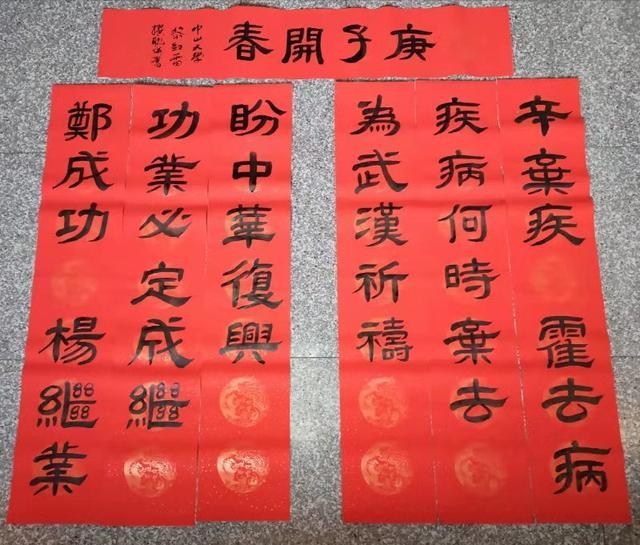 庚子開春
中山大學
黎紅雷
辛棄疾 霍去病
疾病何時棄去
為武漢祈禱
鄭成功 楊繼業
功業必定成繼
盼中華復興